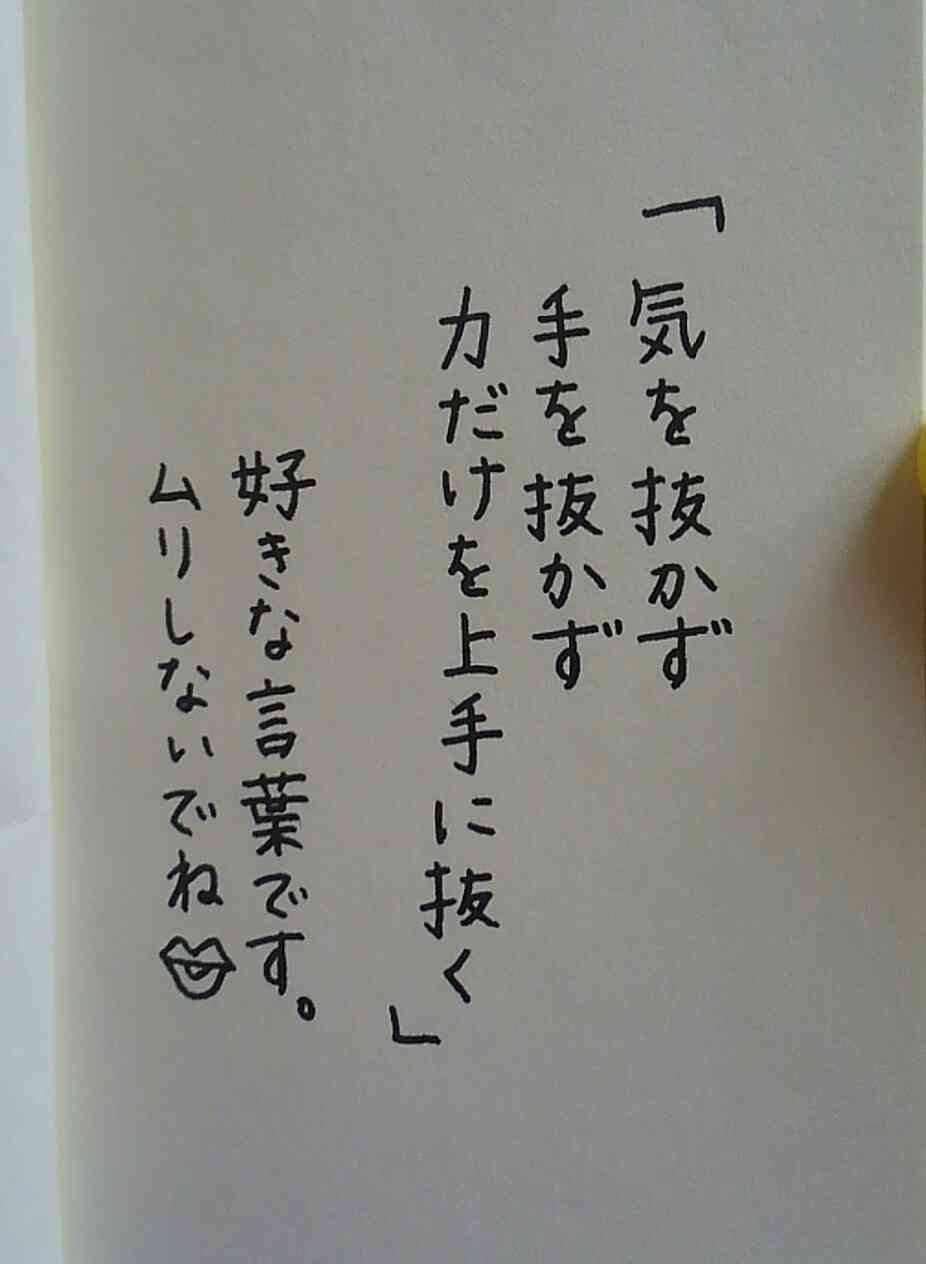 「気を抜かず
手を抜かず
力だけを上手に抜く」
好きな言葉です。
ムリしないでね